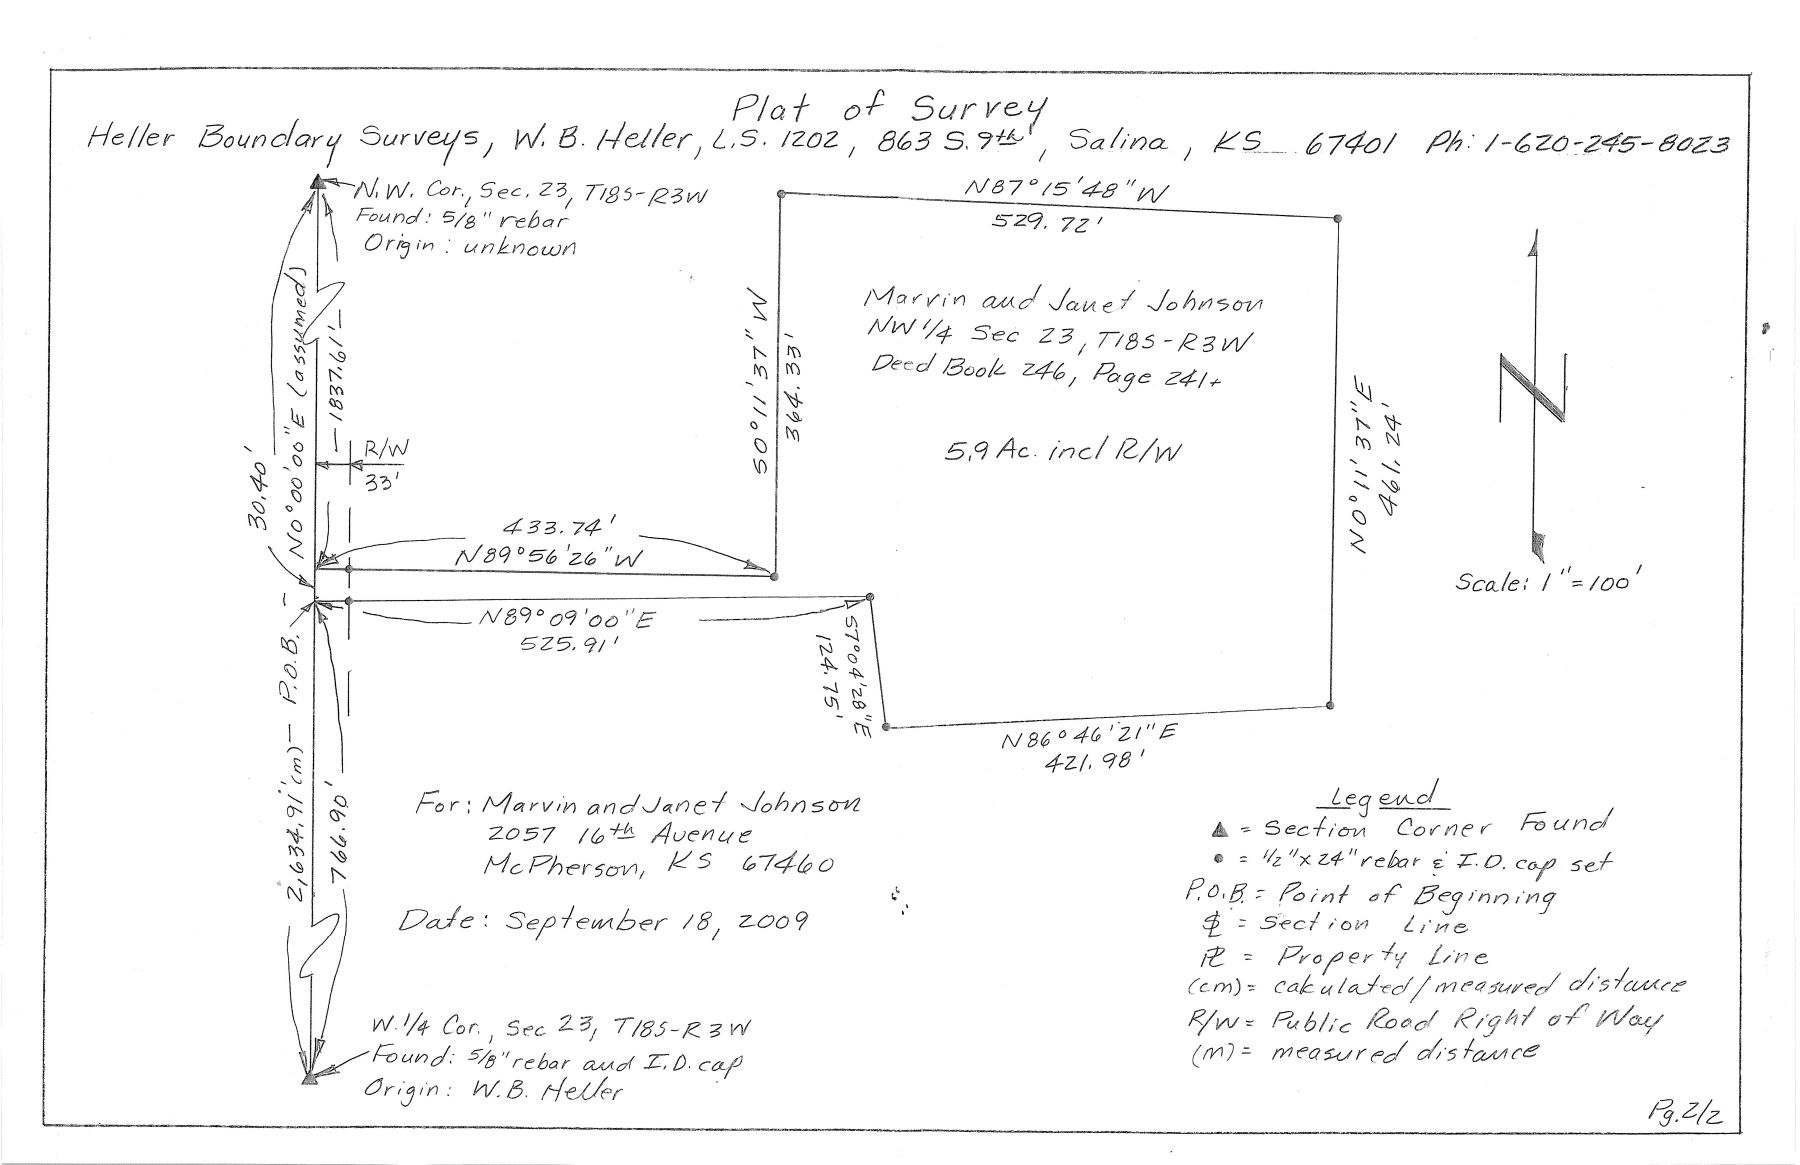 Plat of Survey
Heller Boundary Surveys, W. B. Heller, L.S. 1202, 863 S. 9th, Salina, KS 67401 Ph: 1-620-245-8023
N.W. Cor., Sec. 23, T18S-R3W
Found: 5/8" rebar
Origin: unknown
N87°15'48"W
529.72'
Marvin and Janet Johnson
NW 1/4 Sec 23, T18S-R3W
Deed Book 246, Page 241+
5.9 Ac. incl R/W
S0°11'37"W
364.33'
N0°11'37"E
461.24'
N
Scale: 1"=100'
30.40'
N0°00'00"E (assumed)
1837.61'
R/W
33'
433.74'
N89°56'26"W
N89°09'00"E
525.91'
S7°04'28"E
124.75'
N86°46'21"E
421.98'
2,634.91'(m) — P.O.B. —
766.90'
For: Marvin and Janet Johnson
2057 16th Avenue
McPherson, KS 67460
Date: September 18, 2009
W. 1/4 Cor., Sec 23, T18S-R3W
Found: 5/8" rebar and I.D. cap
Origin: W.B. Heller
Legend
▲ = Section Corner Found
• = 1/2"x24" rebar & I.D. cap set
P.O.B. = Point of Beginning
= Section Line
PL = Property Line
(cm) = calculated/measured distance
R/W = Public Road Right of Way
(m) = measured distance
Pg. 2/2